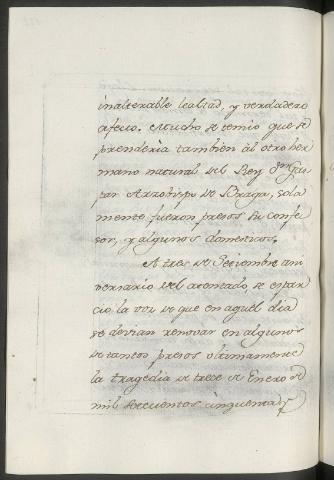 inalterable lealtad, y verdadero
afecto. Mucho se temio que se
prenderia tambien àl otro her
mano natural del Rey Dn Gas
par Arzobispo de Braga, sola
mente fueron presos su confe
sor, y algunos domesticos.
A tres de Setiembre ani
versario del atentado, se espar
cio la voz de que en aquel dia
se devian renovar en algunos
de tantos presos ultimamente
la tragedia de trece de Enero de
mil setecientos cinquenta y